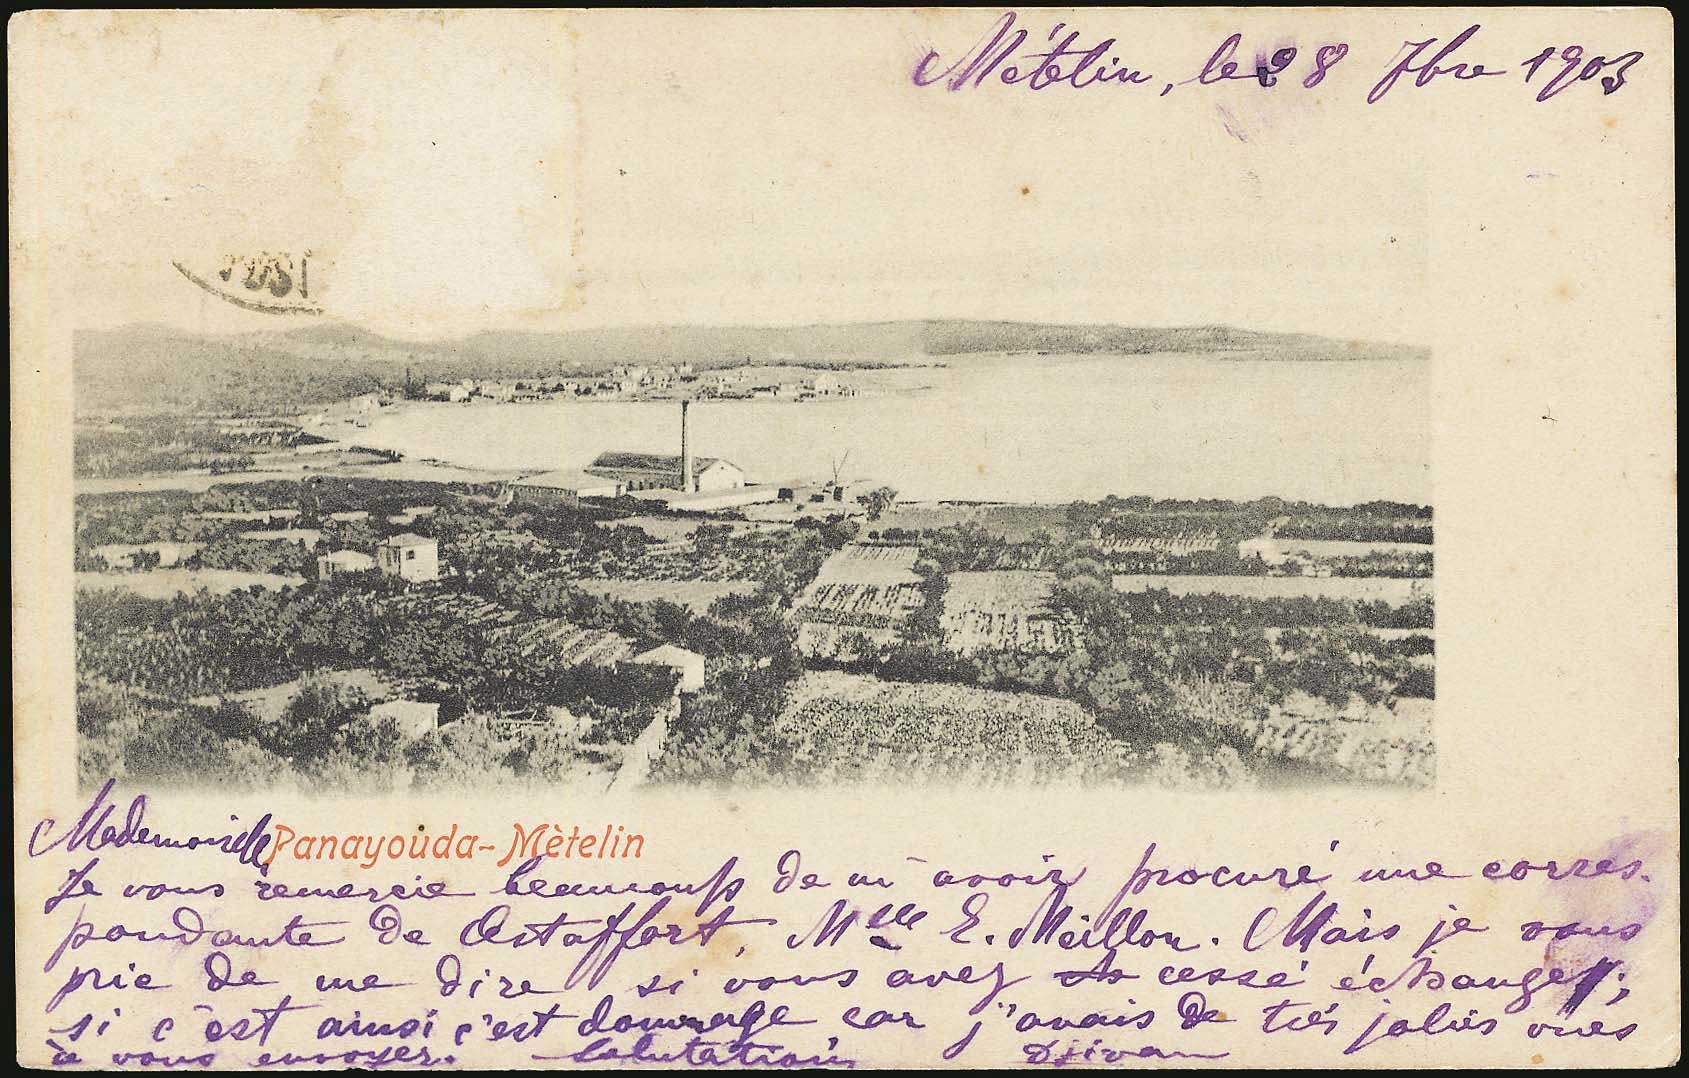 Mételin, le 28 7bre 1903
POSI
Mademoiselle
Panayouda-Mètelin
Je vous remercie beaucoup de m'avoir procuré une corres-
pondante de Astaffort, Mlle E. Meillon. Mais je vous
prie de me dire si vous avez cessé échange;
si c'est ainsi c'est dommage car j'avais de très jolies vues
à vous envoyer. Salutation Djivan